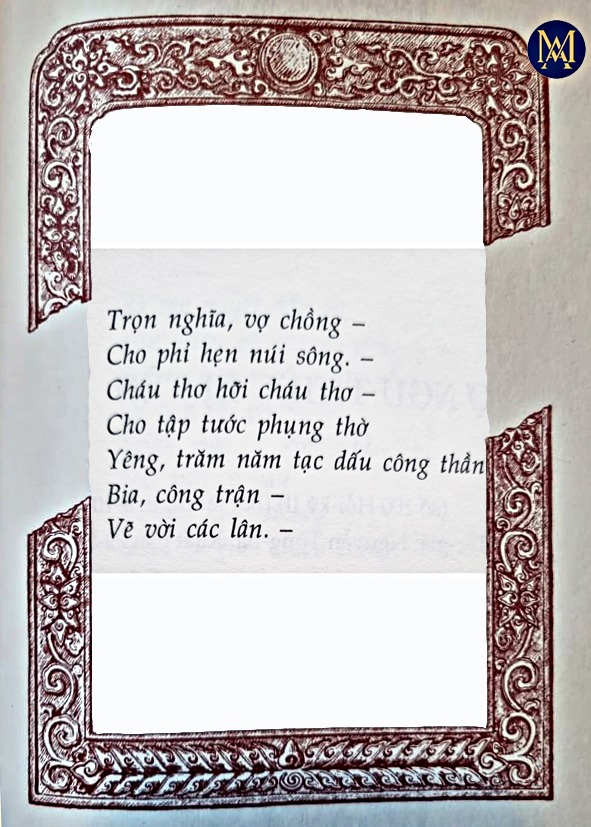 MA
Trọn nghĩa, vợ chồng –
Cho phỉ hẹn núi sông. –
Cháu thơ hỡi cháu thơ –
Cho tập tước phụng thờ
Yêng, trăm năm tạc dấu công thần
Bia, công trận –
Vẽ vời các lân. –